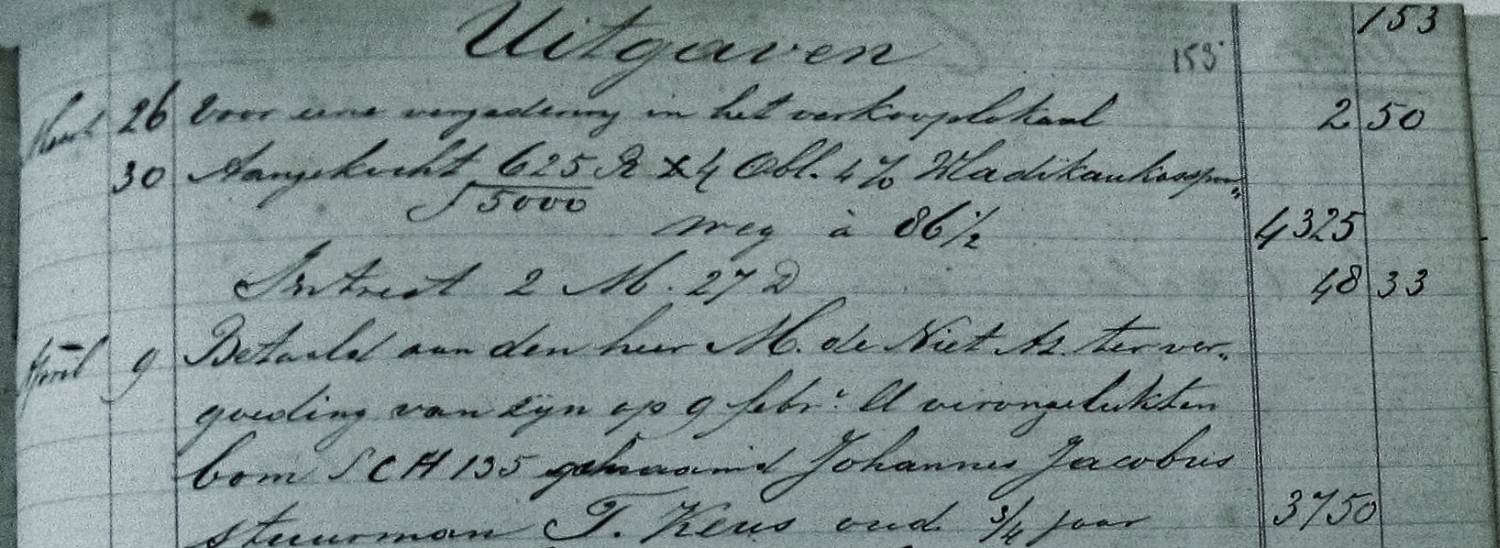 153
Uitgaven 153
Maart 26 Voor eene vergadering in het verkooplokaal 2 50
30 Aangekocht 625 R x 4 Obl. 4% Wladikaukasspoor„
f 5000
weg à 86 1/2 4325
Intrest 2 M. 27 D 48 33
April 9 Betaald aan den heer M. de Niet Az. ter ver„
goeding van zijn op 9 febr. ll verongelukten
bom SCH 135 genaamd Johannes Jacobus
stuurman T. Keus oud 3/4 jaar 3750